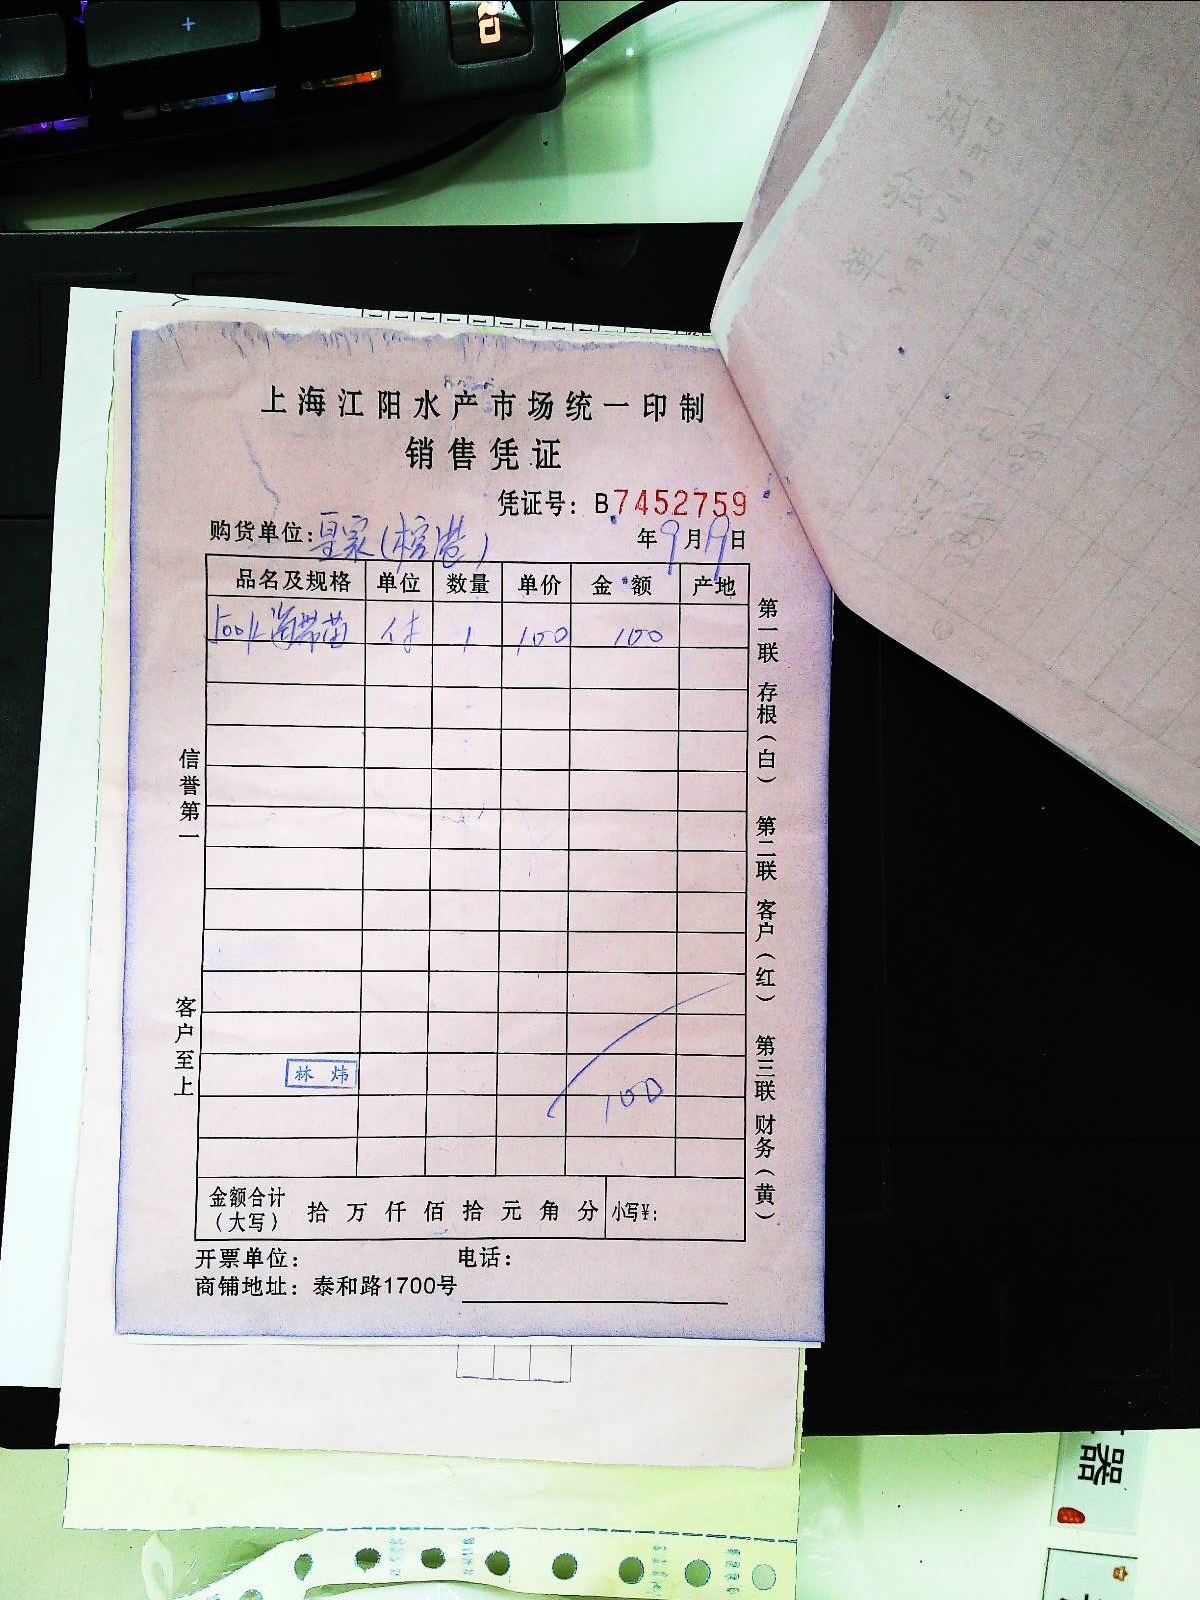 上海江阳水产市场统一印制
销售凭证
凭证号：B7452759
购货单位：皇家（ ） 年9月19日
品名及规格 单位 数量 单价 金额 产地
海带苗 件 1 100 100
100
林炜
信誉第一
客户至上
第一联 存根（白） 第二联 客户（红） 第三联 财务（黄）
金额合计（大写） 拾 万 仟 佰 拾 元 角 分 小写¥：
开票单位： 电话：
商铺地址：泰和路1700号
器